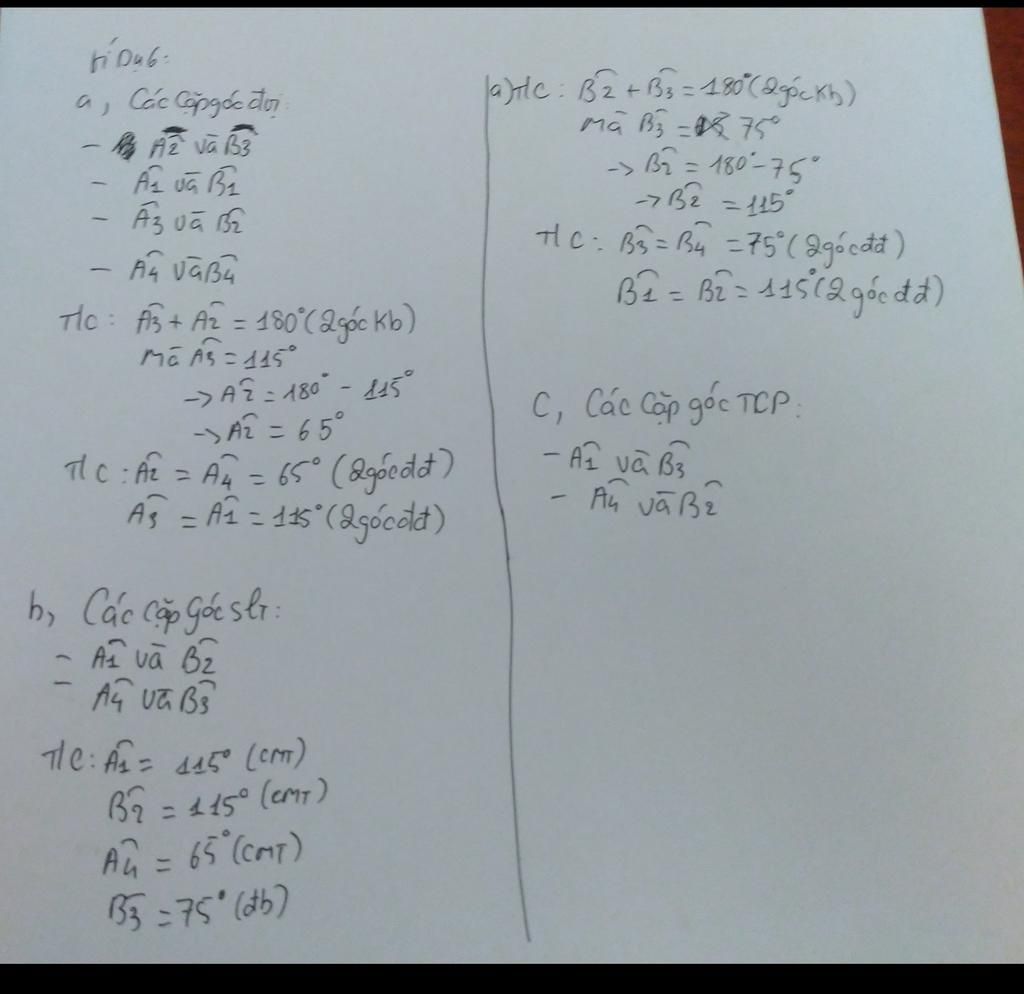 Ví Dụ 6:
a, Các cặp góc đvị:
- Â2 và B̂3
- Â1 và B̂1
- Â3 và B̂2
- Â4 và B̂4
T/C: Â3 + Â2 = 180° (2 góc Kb)
mà Â3 = 115°
-> Â2 = 180° - 115°
-> Â2 = 65°
T/C: Â2 = Â4 = 65° (2 góc đđ)
Â3 = Â1 = 115° (2 góc đđ)
b, Các cặp góc slt:
- Â1 và B̂2
- Â4 và B̂3
T/C: Â1 = 115° (CMT)
B̂2 = 115° (CMT)
Â4 = 65° (CMT)
B̂3 = 75° (đb)
a) T/C: B̂2 + B̂3 = 180° (2 góc Kb)
mà B̂3 = 75°
-> B̂2 = 180° - 75°
-> B̂2 = 115°
T/C: B̂3 = B̂4 = 75° (2 góc đđ)
B̂1 = B̂2 = 115° (2 góc đđ)
C, Các cặp góc TCP:
- Â1 và B̂3
- Â4 và B̂2